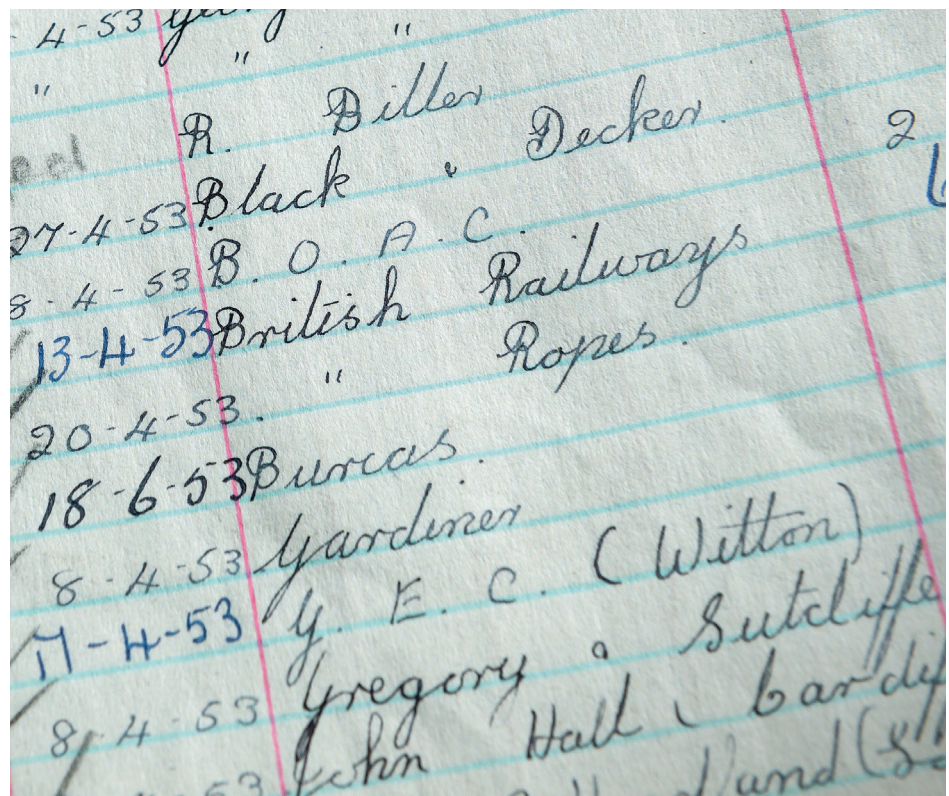 4-53
" " "
R. Biller
Black & Decker.
27-4-53 B.O.A.C.
8-4-53 British Railways
13-4-53 " Ropes.
20-4-53.
18-6-53 Burcas.
8-4-53 Gardiner
17-4-53 G.E.C. (Witton)
8-4-53 Gregory & Sutcliffe
53 John Hall (Cardiff